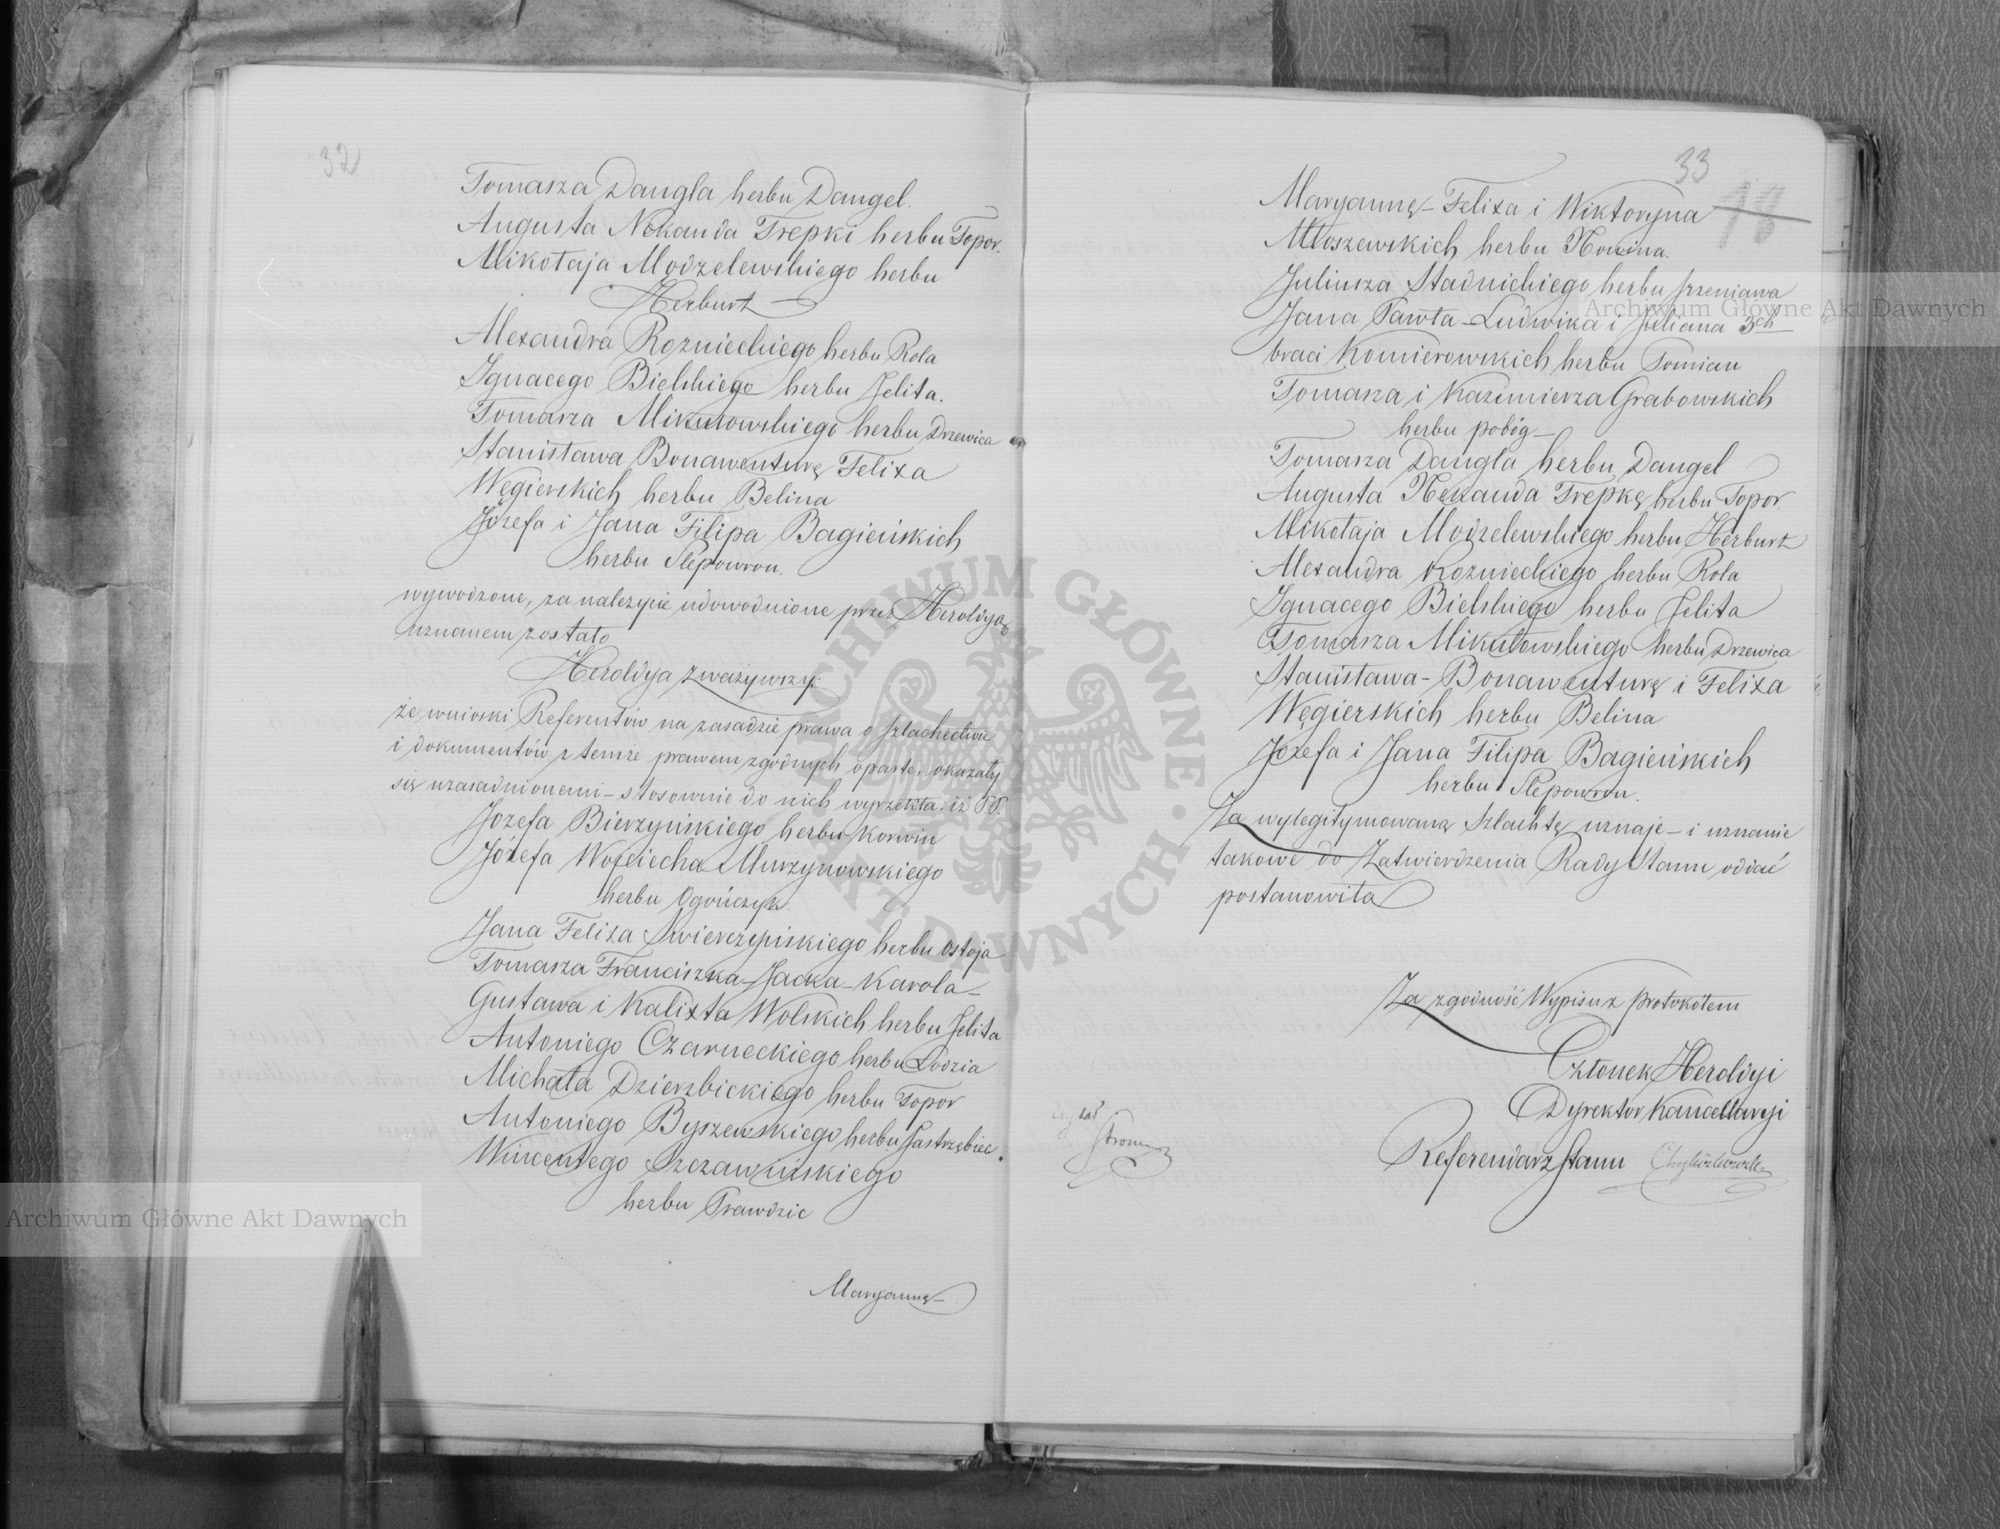 32
Tomasza Dangla herbu Dangel.
Augusta Nekanda Trepki herbu Topor.
Mikołaja Modzelewskiego herbu
Herburt
Alexandra Roznieckiego herbu Rola
Ignacego Bielskiego herbu Jelita.
Tomasza Mikułowskiego herbu Drzewica
Stanisława Bonawenturę Felixa
Węgierskich herbu Belina
Józefa i Jana Filipa Bagieńskich
herbu Slepowron.
wywodzone, za należycie udowodnione przez Heroldyą
uznanem zostało
Heroldya zważywszy:
że wnioski Referentów na zasadzie prawa o szlachectwie
i dokumentów z temże prawem zgodnych oparte, okazały
się uzasadnionemi – stosownie do nich wyrzekła: iż
Józefa Bierzyńskiego herbu Korwin
Józefa Wojciecha Murzynowskiego
herbu Ogończyk.
Jana Felixa Swierczyńskiego herbu Ostoja
Tomasza Franciszka – Jacka – Karola –
Gustawa i Kalixta Wolskich herbu Jelita
Antoniego Czarneckiego herbu Łodzia
Michała Dzierzbickiego herbu Topor
Antoniego Byszewskiego herbu Jastrzębiec.
Wincentego Szczawińskiego
herbu Prawdzic
Maryannę –
33
18
Maryannę – Felixa i Wiktoryna
Młoszewskich herbu Nowina.
Juliusza Stadnickiego herbu Szreniawa
Jana Pawła – Ludwika i Juliana 3ch
braci Komierowskich herbu Pomian
Tomasza i Kazimierza Grabowskich
herbu pobóg –
Tomasza Dangla herbu Dangel
Augusta Nekanda Trepkę herbu Topor.
Mikołaja Modzelewskiego herbu Herburt
Alexandra Rozniechiego herbu Rola
Ignacego Bielskiego herbu Jelita
Tomasza Mikułowskiego herbu Drzewica
Stanisława – Bonawenturę i Felixa
Węgierskich herbu Belina
Józefa i Jana Filipa Bagieńskich
herbu Slepowron.
Za wylegitymowaną Szlachtę uznaje – i uznanie
takowe do Zatwierdzenia Rady Stanu oddać
postanowiła
Za zgodność Wypisu z protokołem
Członek Heroldyi
Dyrektor Kancellaryi
Referendarz Stanu
Archiwum Główne Akt Dawnych
Archiwum Główne Akt Dawnych
ARCHIWUM GŁÓWNE AKT DAWNYCH